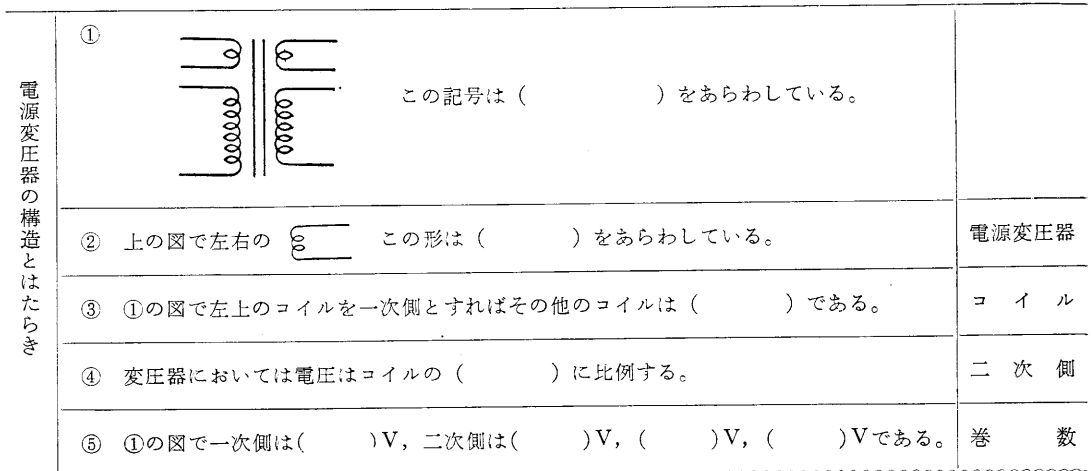 電源変圧器の構造とはたらき
①
この記号は（　　　　　）をあらわしている。
② 上の図で左右の　　この形は（　　　　）をあらわしている。
電源変圧器
③ ①の図で左上のコイルを一次側とすればその他のコイルは（　　　　）である。
コイル
④ 変圧器においては電圧はコイルの（　　　　）に比例する。
二次側
⑤ ①の図で一次側は(　　　)V，二次側は(　　　)V，(　　　)V，(　　　)Vである。
巻数